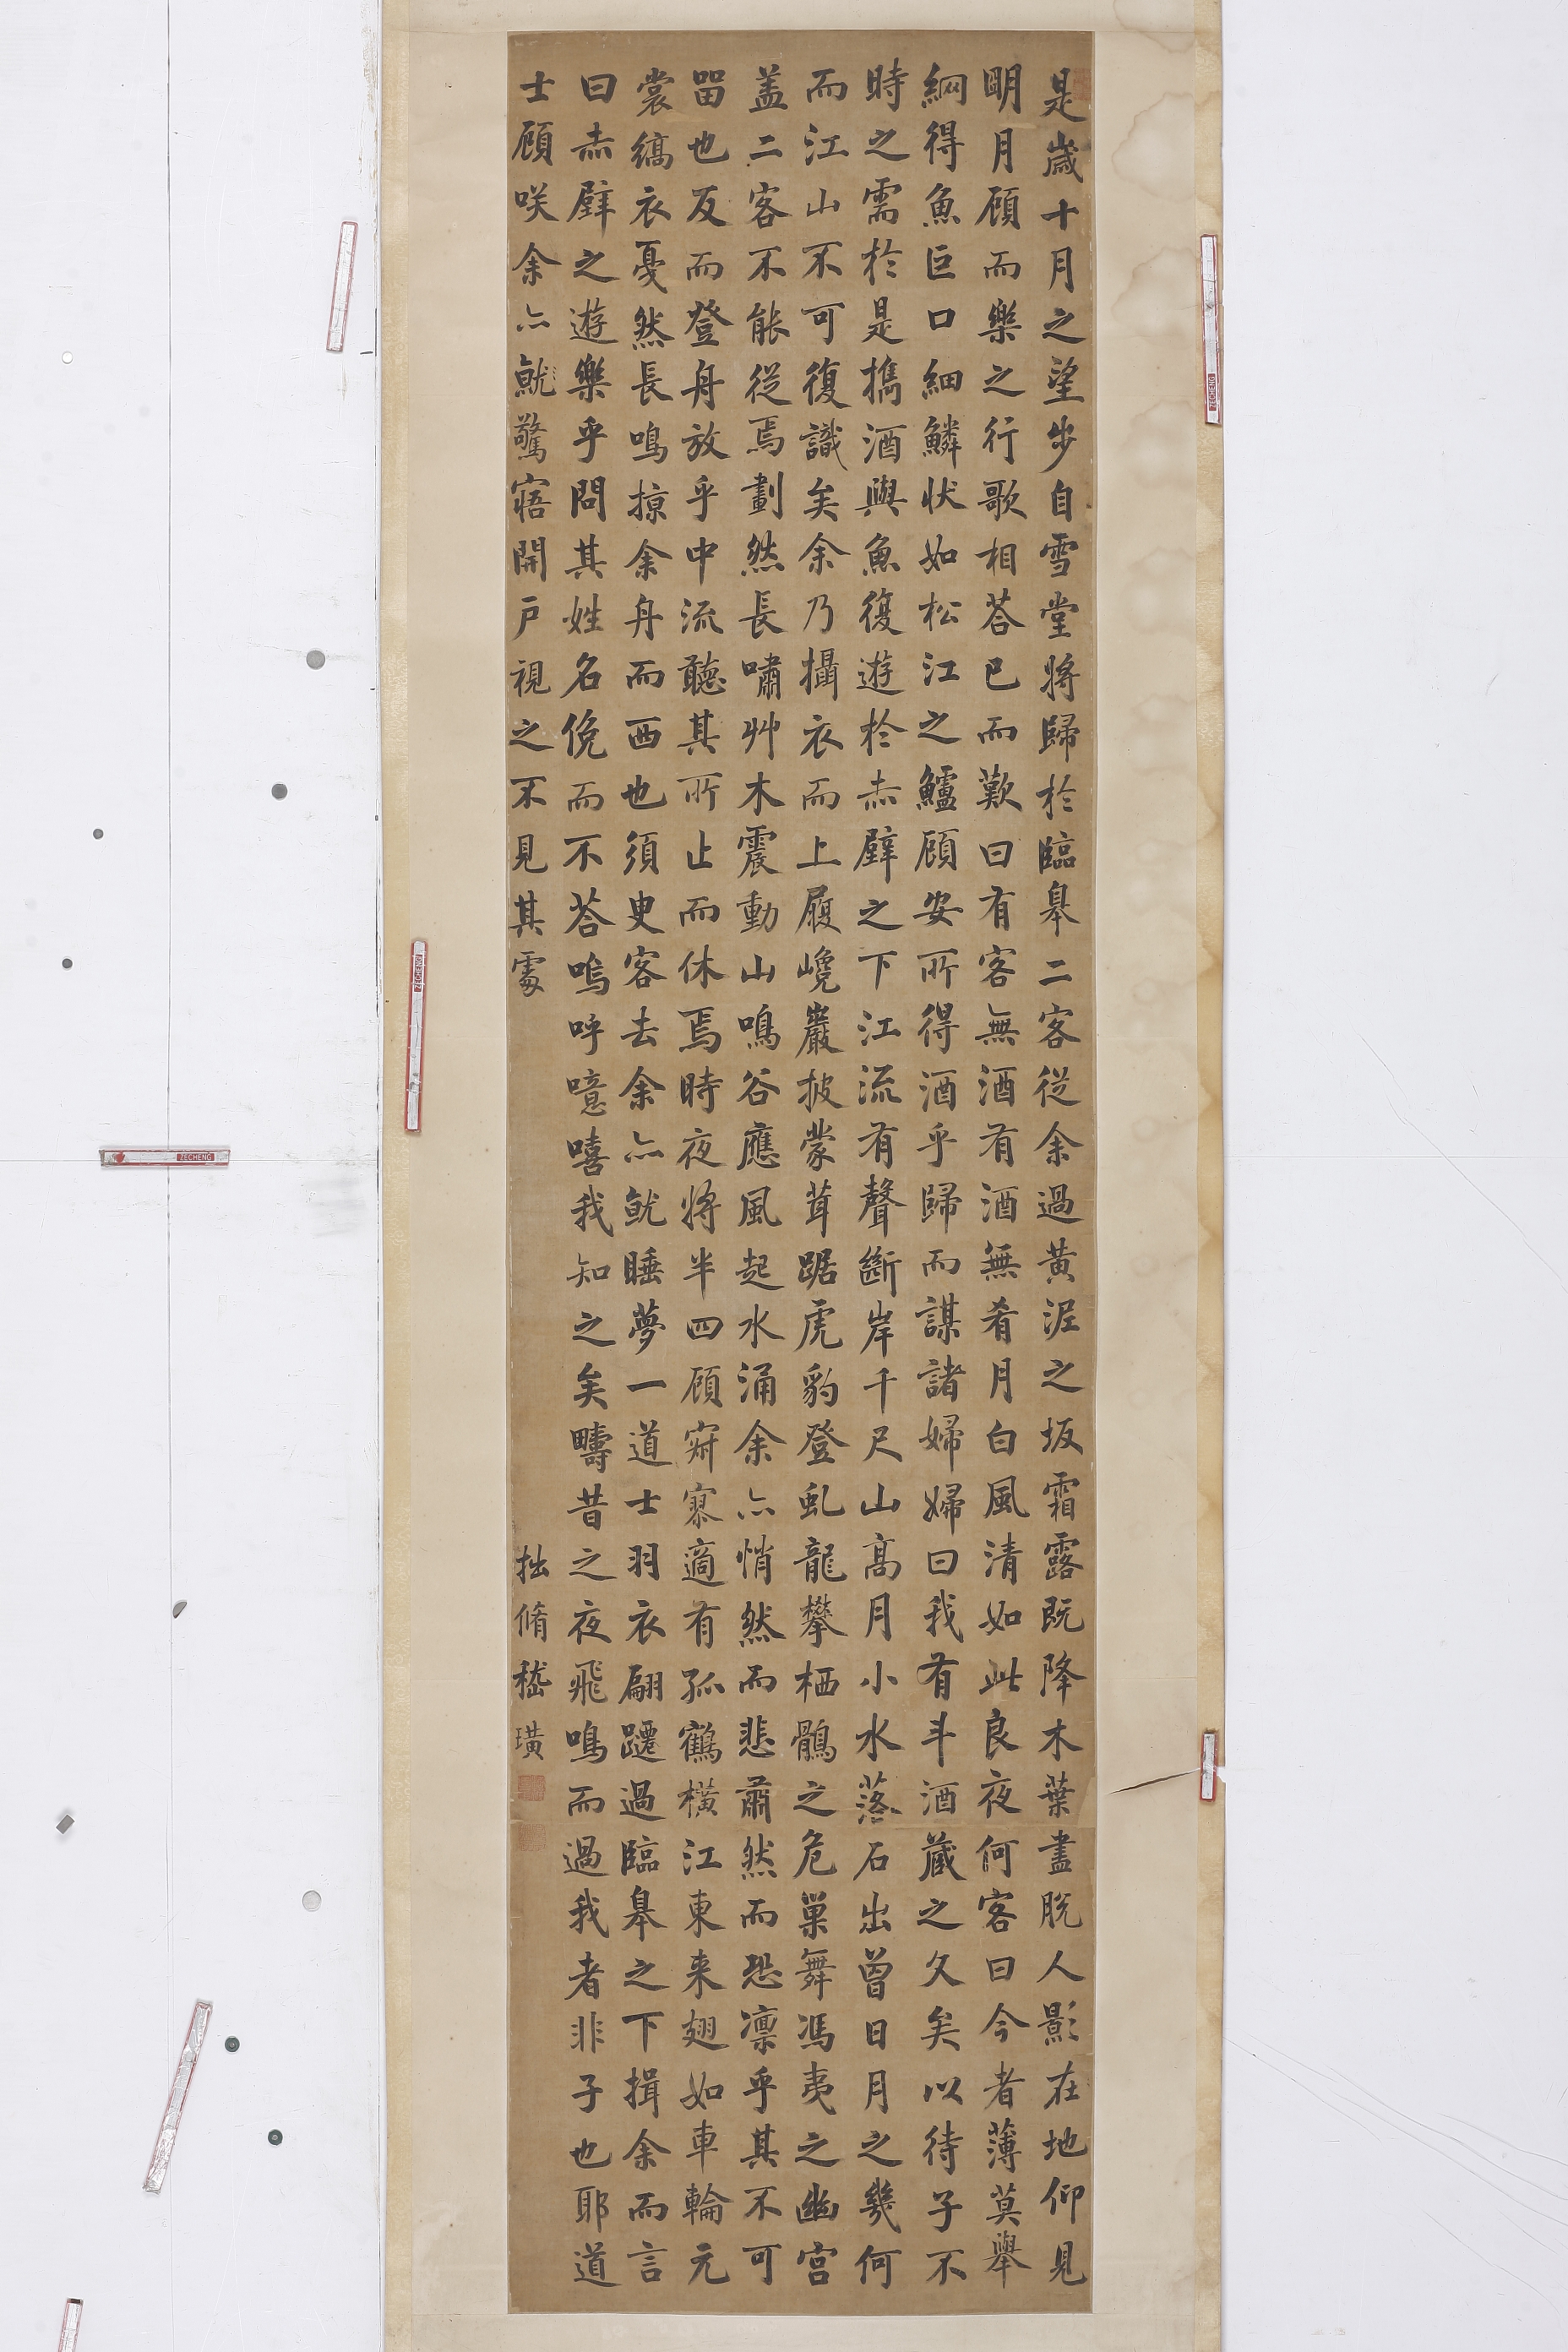 是歲十月之望步自雪堂將歸於臨皋二客從余過黃泥之坂霜露既降木葉盡脫人影在地仰見
明月顧而樂之行歌相荅已而歎曰有客無酒有酒無肴月白風清如此良夜何客曰今者薄莫舉
網得魚巨口細鱗狀如松江之鱸顧安所得酒乎歸而謀諸婦婦曰我有斗酒藏之久矣以待子不
時之需於是攜酒與魚復遊於赤壁之下江流有聲斷岸千尺山高月小水落石出曾日月之幾何
而江山不可復識矣余乃攝衣而上履巉巖披蒙茸踞虎豹登虬龍攀栖鶻之危巢舞馮夷之幽宮
蓋二客不能從焉劃然長嘯艸木震動山鳴谷應風起水涌余亦悄然而悲肅然而恐凜乎其不可
留也反而登舟放乎中流聽其所止而休焉時夜將半四顧寂寥適有孤鶴橫江東來翅如車輪元
裳縞衣戛然長鳴掠余舟而西也須臾客去余亦就睡夢一道士羽衣翩躚過臨皋之下揖余而言
曰赤壁之遊樂乎問其姓名俛而不荅嗚呼噫嘻我知之矣疇昔之夜飛鳴而過我者非子也耶道
士顧咲余亦就驚寤開戶視之不見其處
拙脩嵇璜
ZECHENG
ZECHENG
ZECHENG